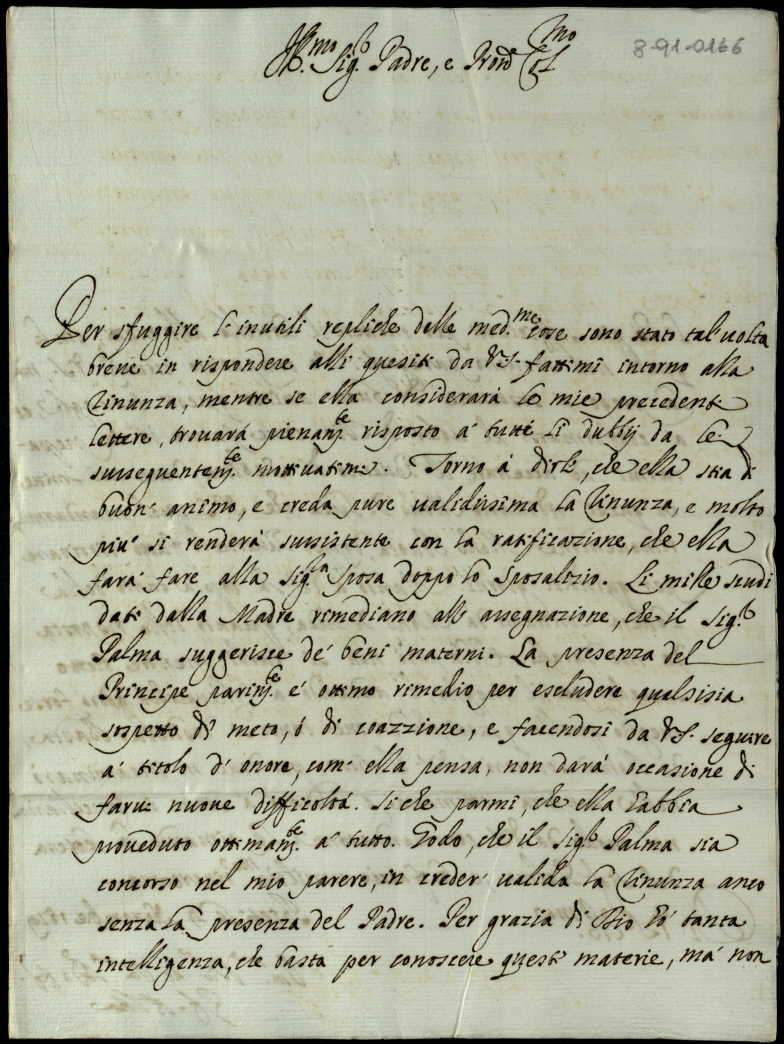 8-91-0166
Ill.mo Sig.r Padre, e Pron.e Col.mo
Per sfuggire l'inutili repliche delle med.me cose sono stato tal'uolta
breue in rispondere alli quesiti da VS. fattimi intorno alla
Rinunza, mentre se ella considerará le mie precedenti
lettere, trouará pienam.te risposto á tutti li dubbij da lei
susseguentem.te mottiuatimi. Torno á dirle, che ella stia di
buon' animo, e creda pure ualidissima la Rinunza, e molto
piu' si renderá sussistente con la ratificazione, che ella
fará fare alla Sig.ra Sposa doppo lo Sposalizio. Li mille scudi
dati dalla Madre rimediano alle assegnazione, che il Sig.r
Palma suggerisce de' beni materni. La presenza del
Principe parim.te é ottimo rimedio per escludere qualsisia
sospetto di meto, ó di coazzione, e facendosi da VS. seguire
á titolo d'onore, com' ella pensa, non dará occasione di
farui nuoue difficoltá. Si che parmi, che ella habbia
proueduto ottimam.te á tutto. Godo, che il Sig.r Palma sia
concorso nel mio parere, in creder' ualida la Rinunza anco
senza la presenza del Padre. Per grazia di Dio hó tanta
intelligenza, che basta per conoscere queste materie, má non